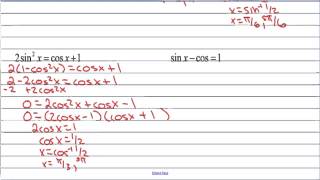 x = sin⁻¹ 1/2
x = π/6, 5π/6
2sin² x = cos x + 1
2(1-cos²x) = cosx + 1
2 - 2cos²x = cosx + 1
-2 +2cos²x
0 = 2cos²x + cosx - 1
0 = (2cosx - 1)(cosx + 1)
2cosx = 1
cosx = 1/2
x = cos⁻¹ 1/2
x = π/3,
sin x - cos = 1